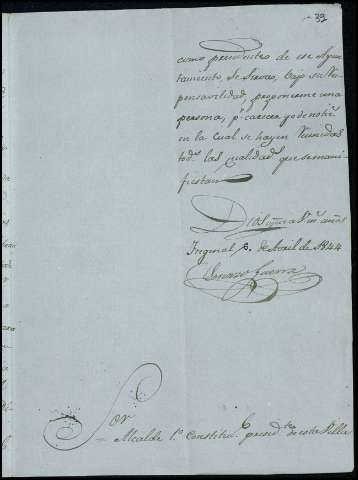 39
como precidente de ese Ayun-
tamiento, se sirva, bajo su Rs-
pensavilidad, proponerme una
persona, pr. carecer yo de notic.
en la cual se hayen reunidas
tods. las qualidads. que se mani-
fiestan
Dios gue a V. ms. años
Fregenal 8. de Abril de 1844
Lorenzo Guerra
Sor
Alcalde 1o. Constitul. presidte. de esta Villa